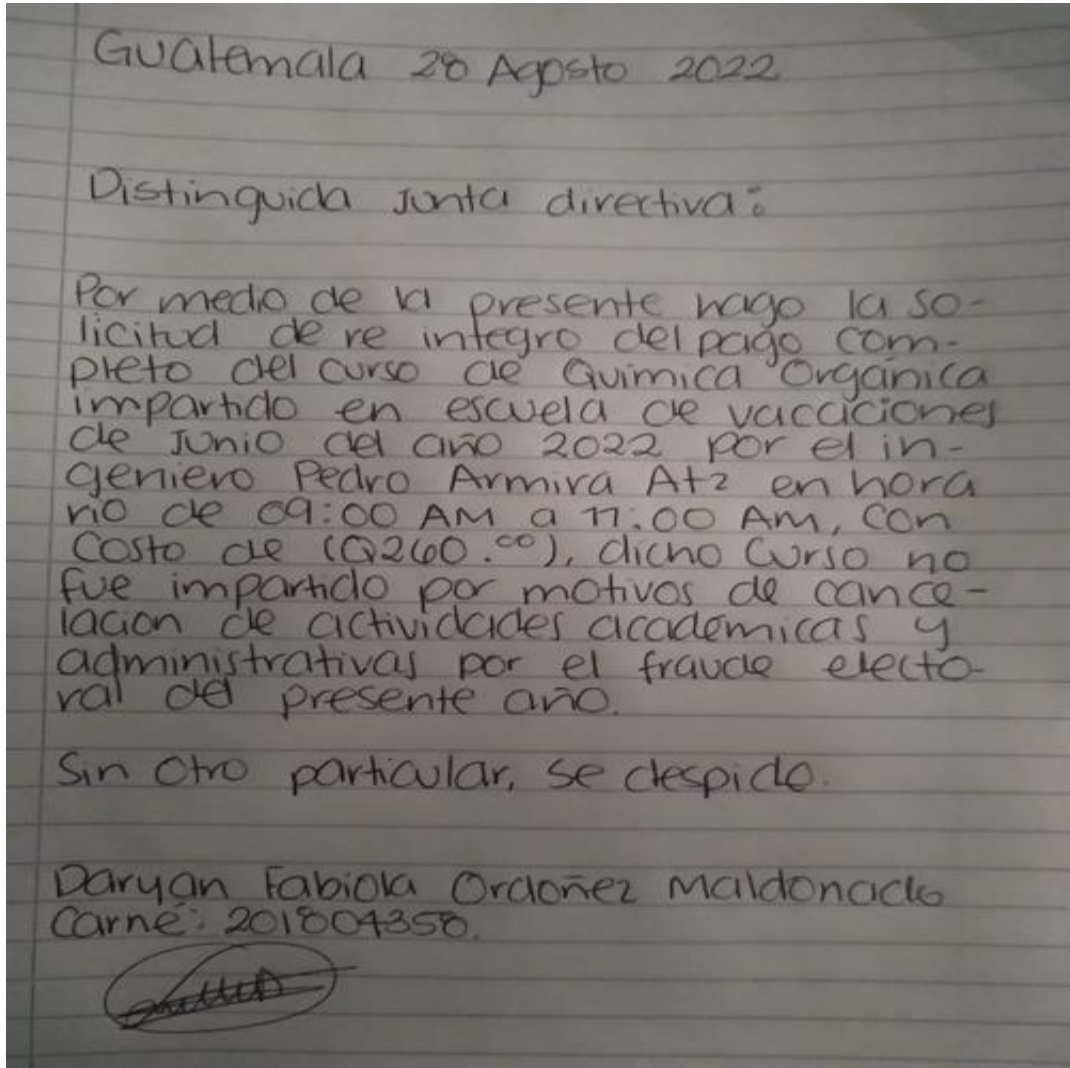 Guatemala 28 Agosto 2022
Distinguida Junta directiva:
Por medio de la presente hago la so-
licitud de re integro del pago com-
pleto del curso de Química Orgánica
impartido en escuela de vacaciones
de Junio del año 2022 por el in-
geniero Pedro Armira Atz en hora
rio de 09:00 AM a 11:00 AM, con
costo de (Q260.00), dicho curso no
fue impartido por motivos de cance-
lacion de actividades academicas y
administrativas por el fraude electo-
ral del presente año.
Sin Otro particular, se despide.
Daryan Fabiola Ordoñez Maldonado
Carné: 201804358.